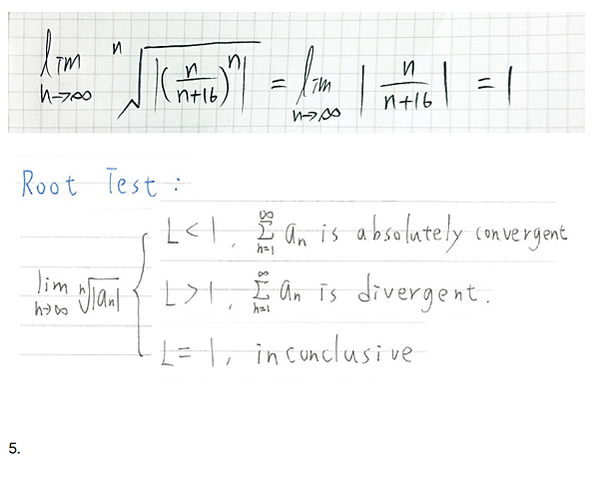 lim n→∞ ⁿ√|(n/n+16)ⁿ| = lim n→∞ |n/n+16| = 1
Root Test :
L < 1, ∞ Σ n=1 an is absolutely convergent
lim n→∞ ⁿ√|an| { L > 1, ∞ Σ n=1 an is divergent.
L = 1, inconclusive
5.